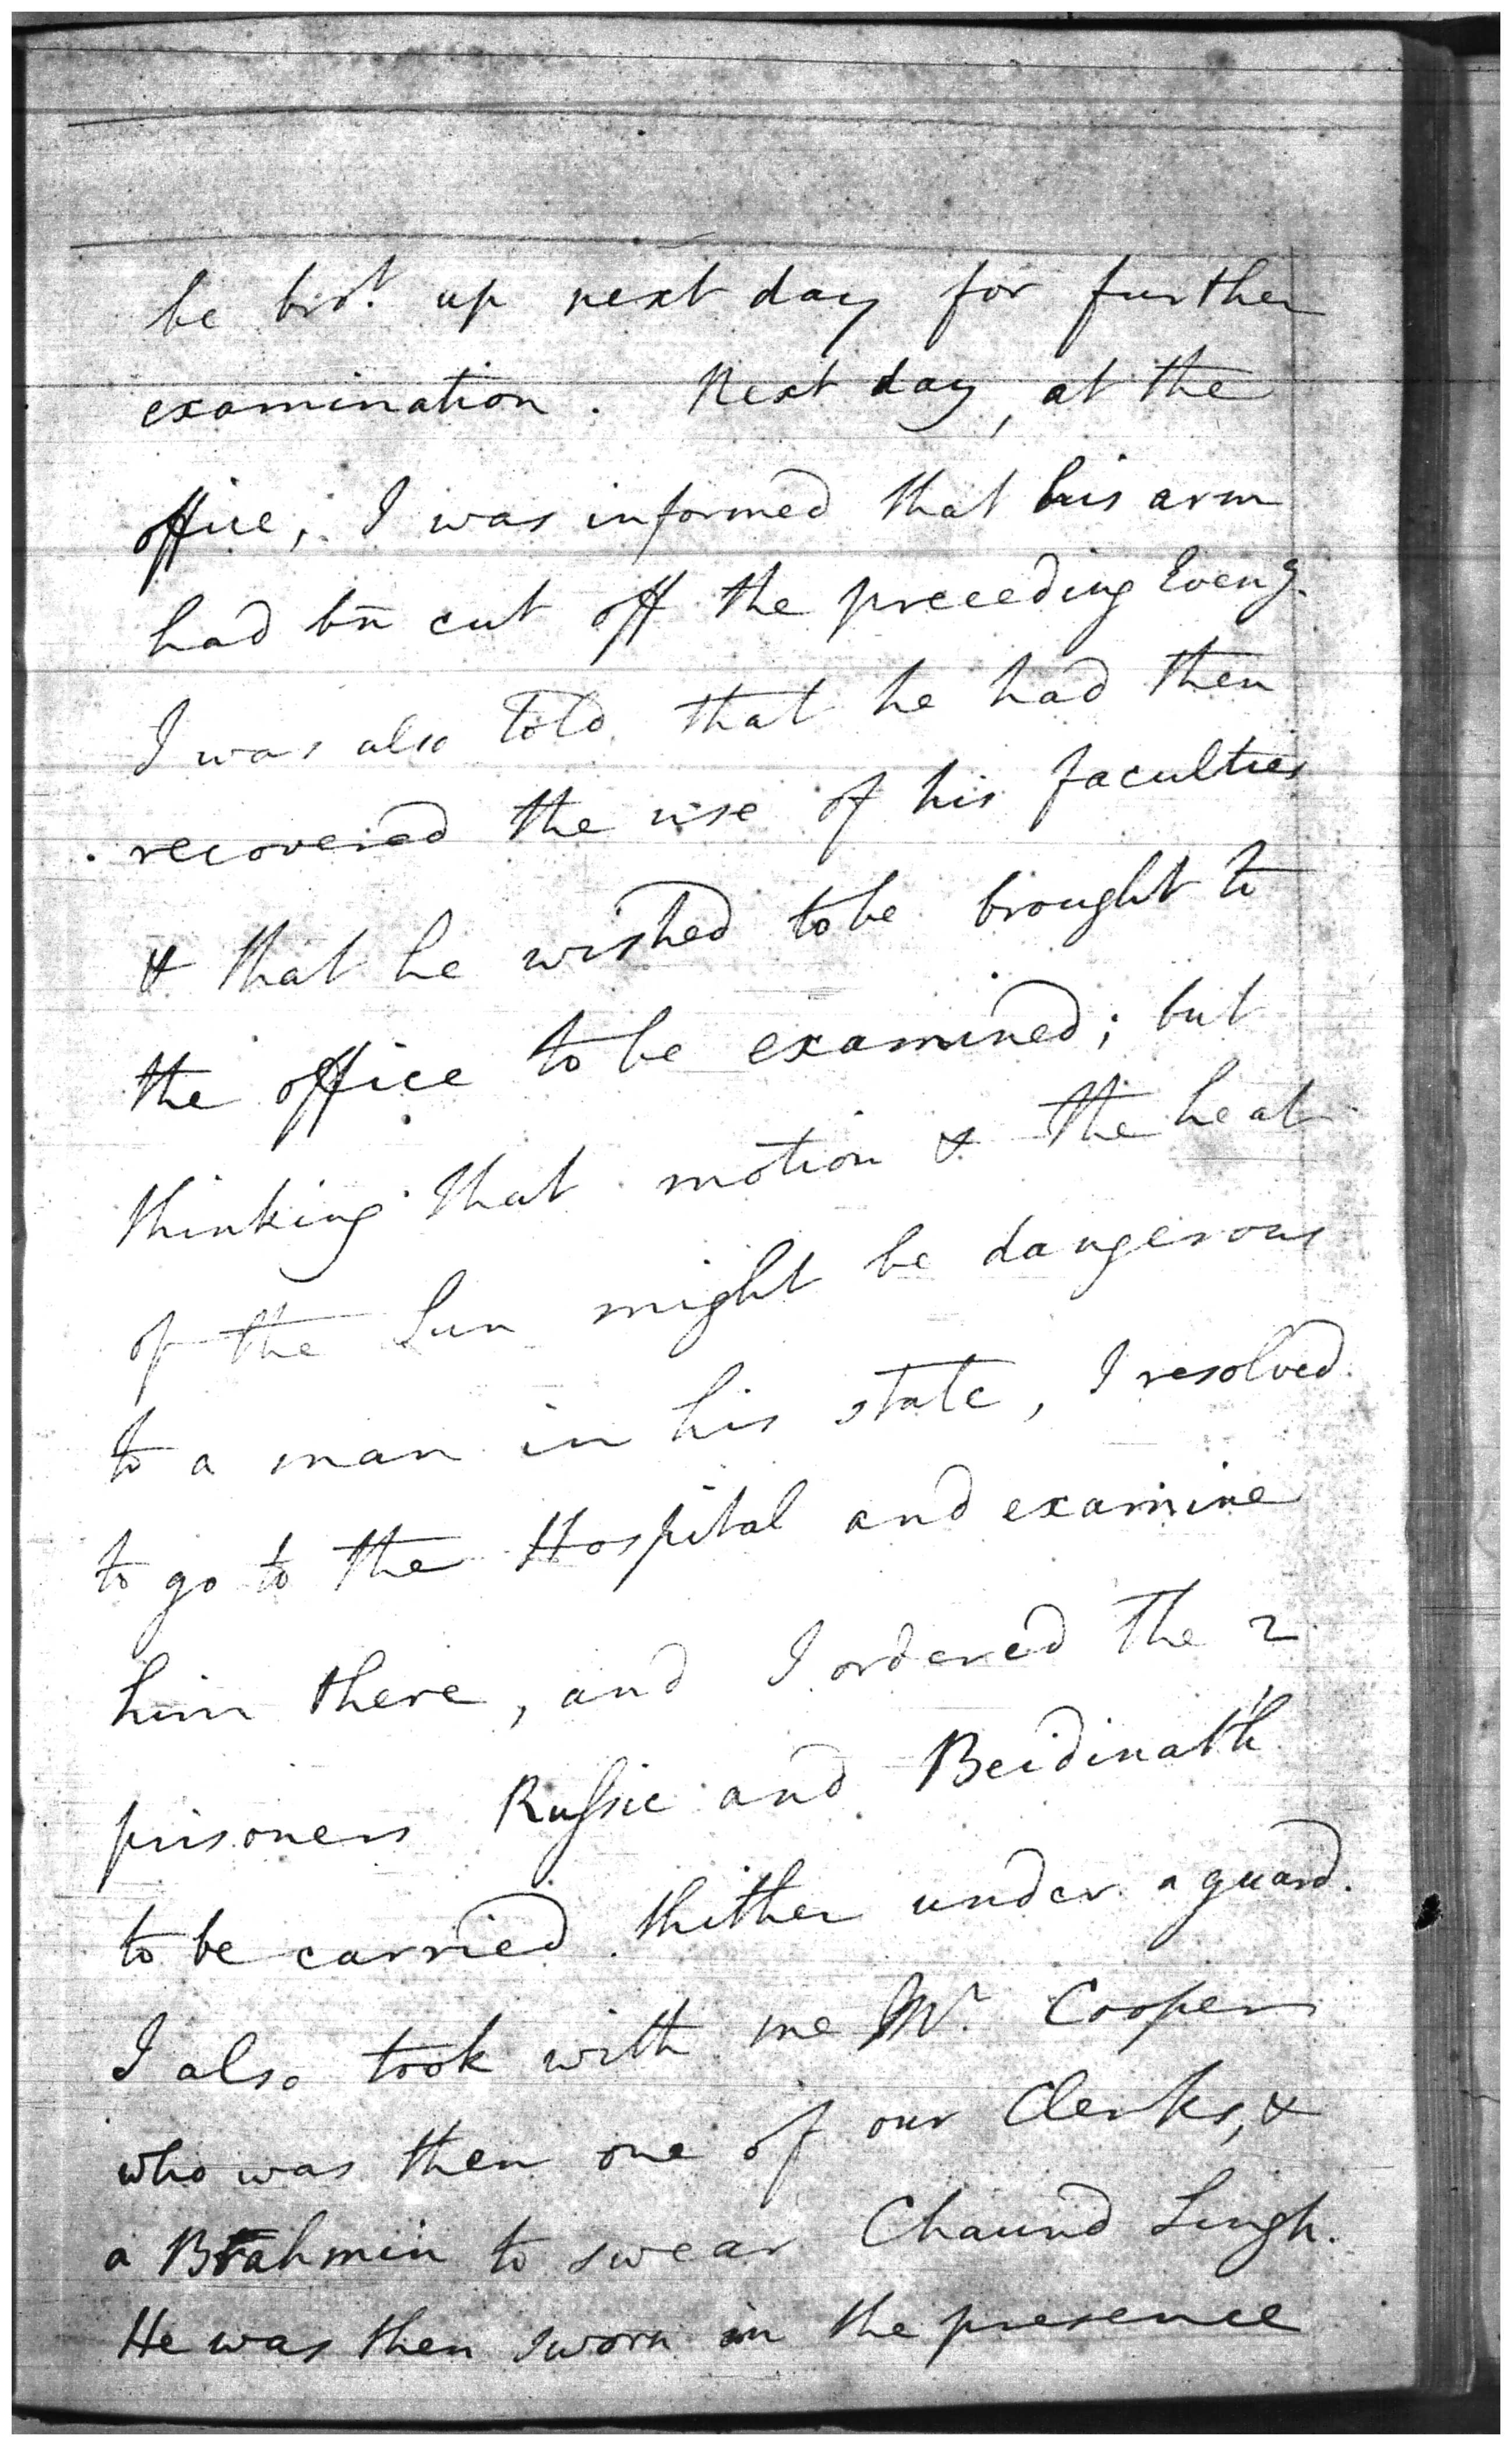 be bro.t up next day for further
examination. Next day, at the
office, I was informed that his arm
had bn̄ cut off the preceeding Eveng.
I was also told that he had then
recovered the use of his faculties
& that he wished to be brought to
the office to be examined; but
thinking that motion & the heat
of the Sun might be dangerous
to a man in his state, I resolved
to go to the Hospital and examine
him there, and I ordered the 2
prisoners Russie and Beidinath
to be carried thither under a guard.
I also took with me Mr. Cooper
who was then one of our Clerks, &
a Brahmin to swear Chaund Singh.
He was then sworn in the presence